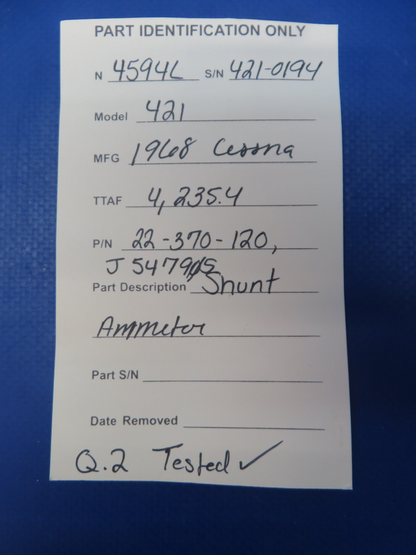 PART IDENTIFICATION ONLY
N 4594L S/N 421-0194
Model 421
MFG 1968 Cessna
TTAF 4,235.4
P/N 22-370-120,
Part Description Shunt
Ammeter
Part S/N
Date Removed
Q.2 Tested ✓